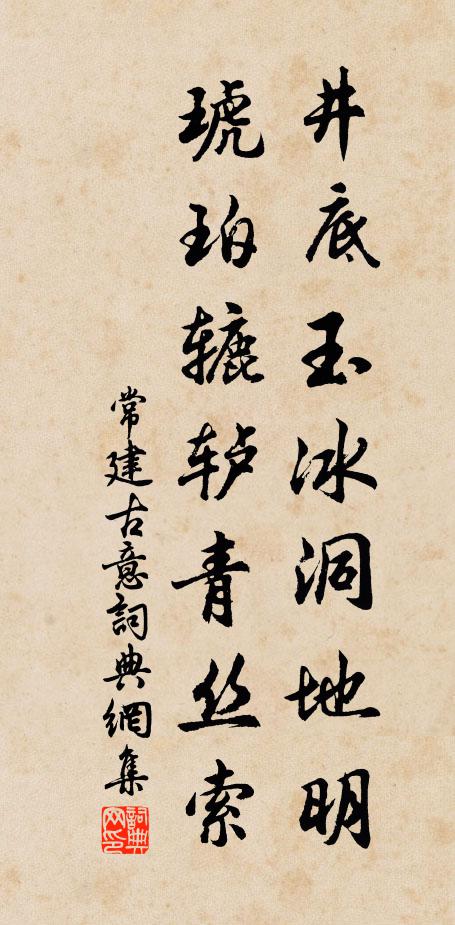 井底玉冰洞地明
琥珀辘轳青丝索
常建古意詞典網集
詞典网印